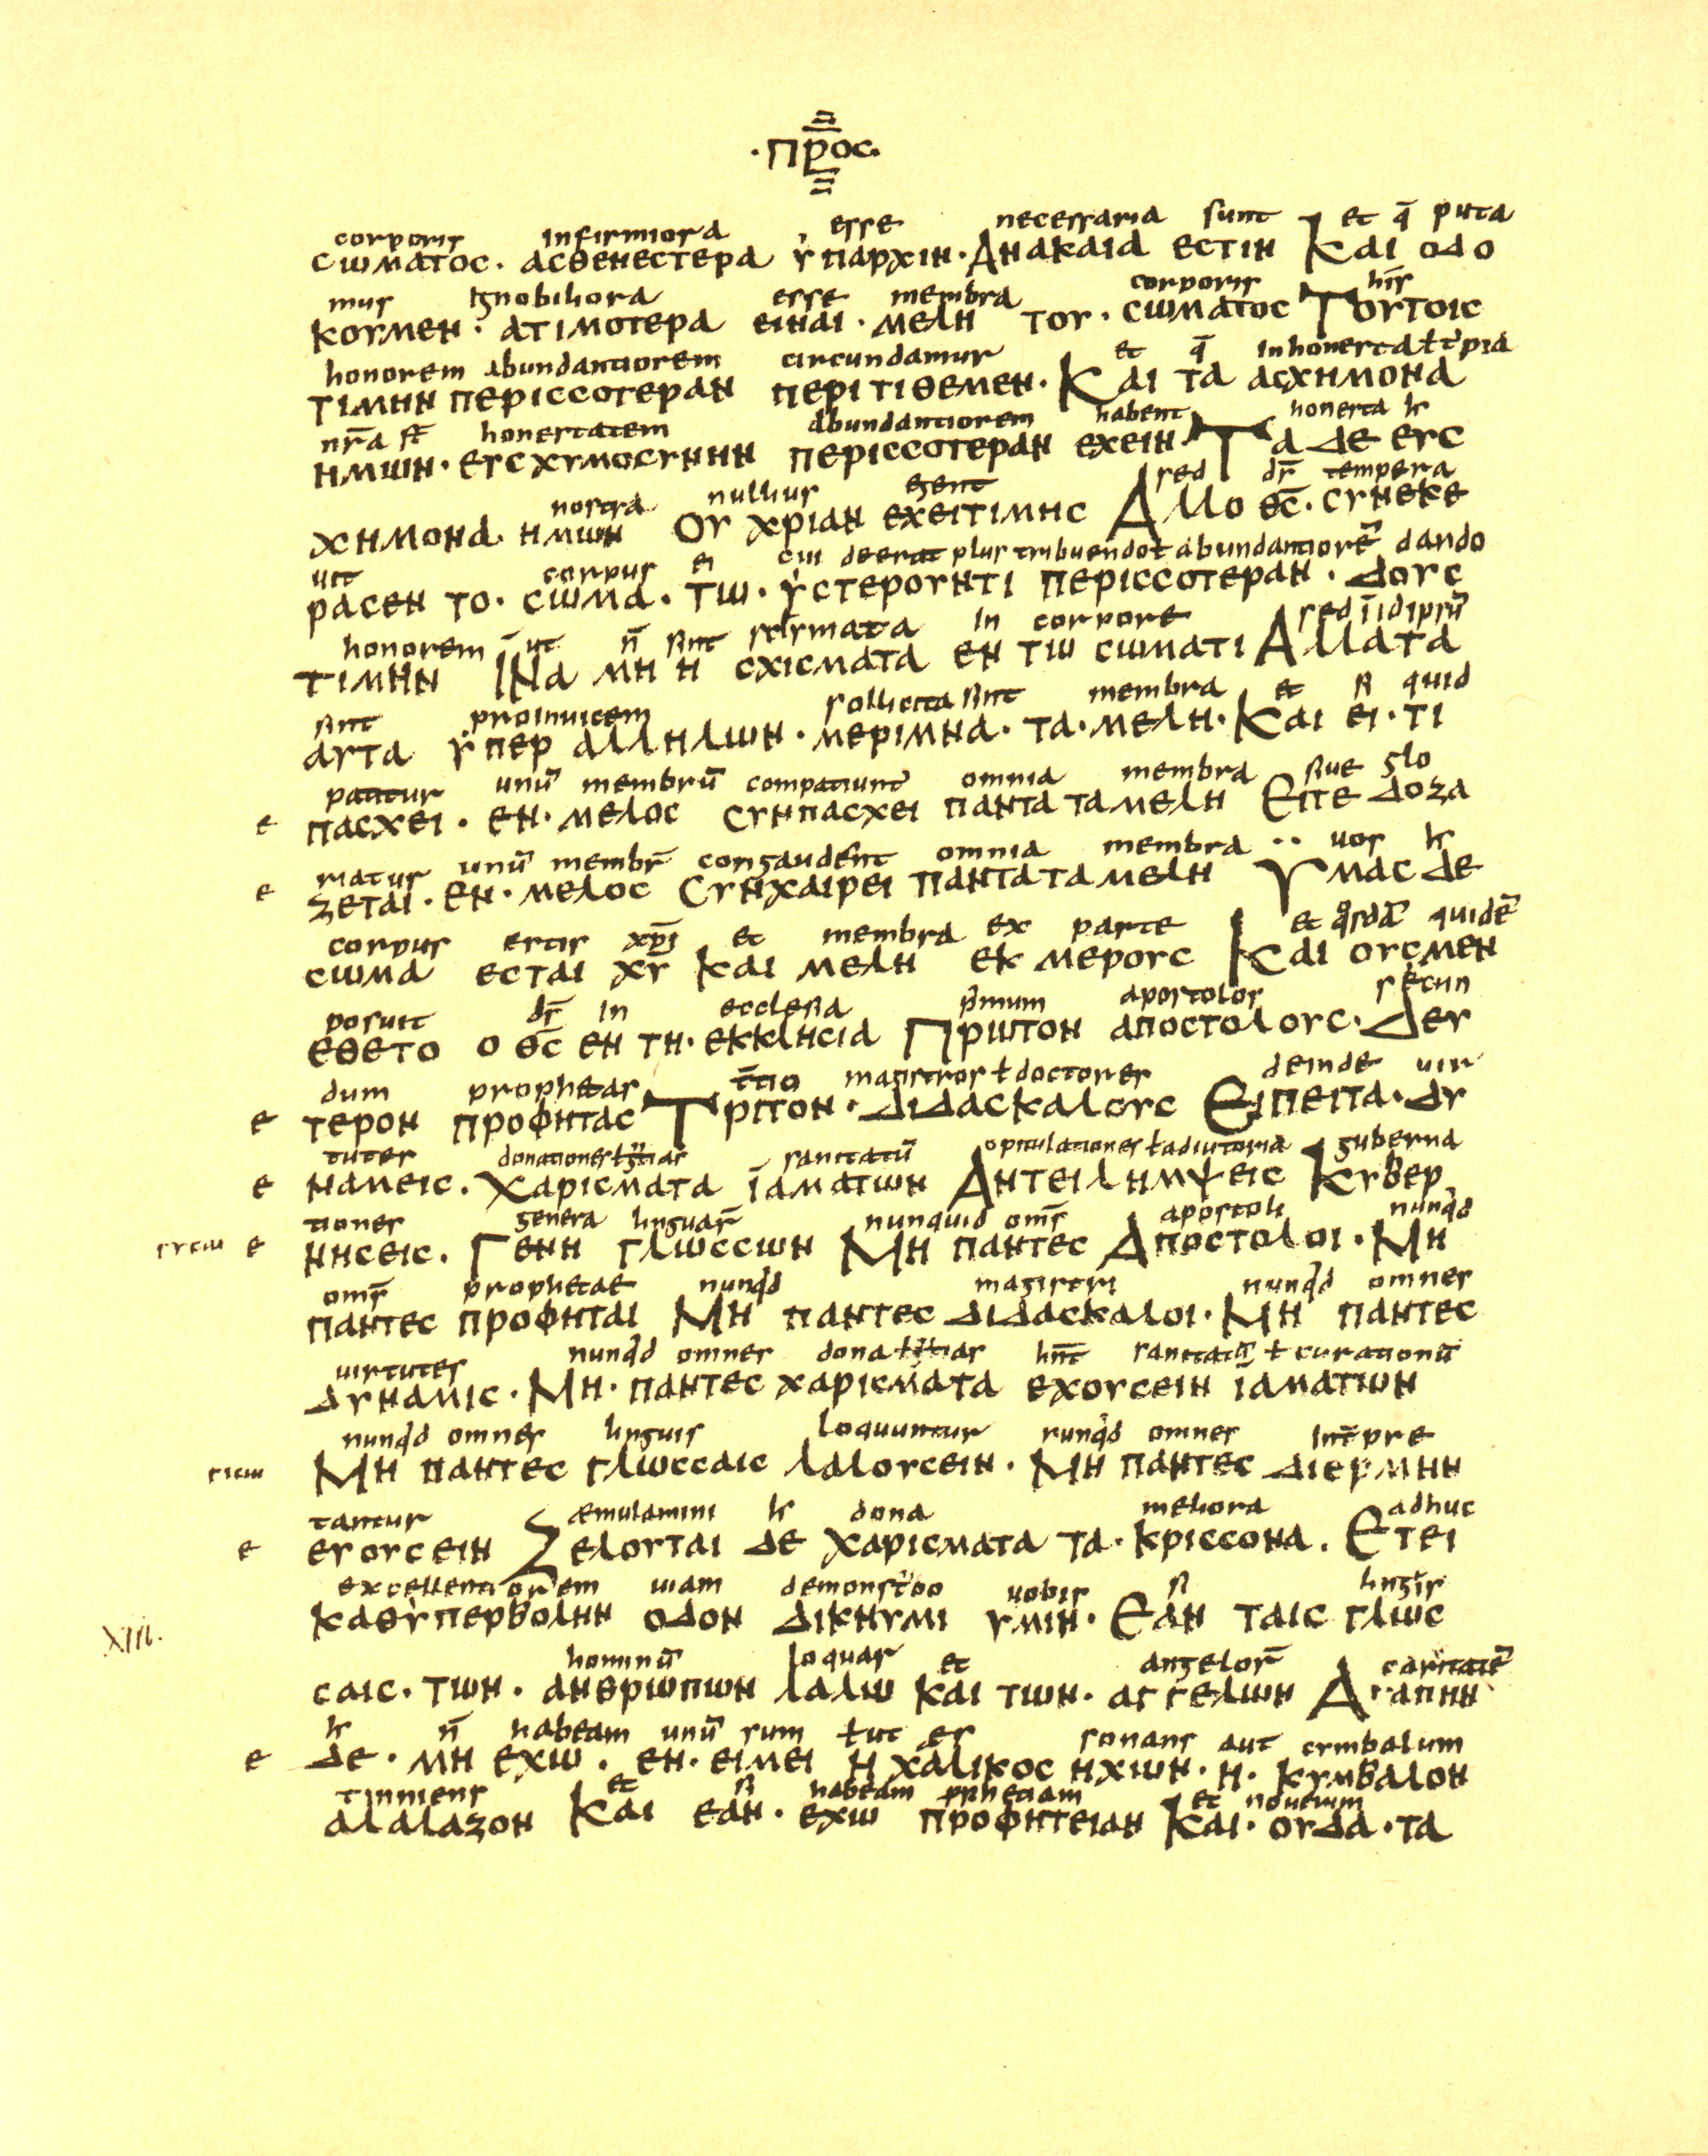 ·προς·
corporis infirmiora esse necessaria sunt et q̄ puta
cωματοc· αcθενεcτερα ὑπαρχιν· Ανακαια εcτιν Και οδο
mus ignobiliora esse membra corporis his̄
κουμεν· ατιμοτερα ειναι· μελη του· cωματοc Τουτοιc
honorem abundantiorem circundamur et q̄ inhonesta ł t'pia
τιμην περιccοτεραν περιτιθεμεν· Και τα αcχημονα
nr̄a sr̄ honestatem abundantiorem habent honesta h
ημων· ευcχυμοcυηνη περιccοτεραν εχειν· Τα δε ευc
nostra nullius egent sed dr̄ tempera
χημονα· ημων Ου χριαν εχειτιμηc Αλλο θc̄· cυνεκε
uit corpus ei cui deerat plus tribuendo ł abundantiorē dando
ραcεν το· cωμα· τω· ὑcτερουντι περιccοτεραν· δουc
honorem ut n̄ sint scismata in corpore sed īidipsū
τιμην ΙΝα μη η cχιcματα εν τω cωματι Αλλατα
sint proinuicem sollicita sint membra et si quid
αυτα ὑπερ αλληλων· μεριμνα· τα· μελη· Και ει· τι
patitur unū membrū compatiunt omnia membra siue glo
e παcχει· εν· μελοc cυνπαcχει παντα τα μελη Ειτε δοζα
riatur unū membr̄ congaudent omnia membra ·· uos h
e ζεται· εν· μελοc cυνχαιρει παντα τα μελη Υμαc δε
corpus estis xp̄i et membra ex parte et q°sdā quidē
cωμα εcται χυ Και μελη εκ μερουc Και ουcμεν
posuit dr̄ in ecclesia p̄mum apostolos secun
εθετο ο θc̄ εν τη· εκκληcια Πρωτον αποcτολουc· Δευ
dum prophetas t̄tio magistros ł doctores deinde uir
e τερον προφηταc Τριτον· Διδαcκαλουc Ειπειτα· Δυ
tutes donationes ł gr̄tias sanitatū opitulationes ł adiutoria guberna
e ναμειc· Χαριcματα ἰαματων Αντειλημψειc Κυβερ
tiones genera linguar̄ nunquid omr̄ apostoli nunq'd
e νηcειc· Γενη γλωccων Μη παντεc Αποcτολοι· Μη
omr̄ prophetae nunq'd magistri nunq'd omnes
παντεc προφηται Μη παντεc Διδαcκαλοι· Μη παντεc
uirtutes nunq'd omnes dona ł gr̄tias hn̄t sanitatū ł curationū
Δυναμιc· Μη· παντεc χαριcματα εχουcειν ἰαματων
nunq'd omnes linguis loquuntur nunq'd omnes int̄pre
Μη παντεc γλωccαιc λαλουcειν· Μη παντεc Διερμην
tantur æmulamini h dona meliora adhuc
e ευουcειν Ζελουται δε χαριcματα τα· κριccονα. Ετει
excellentiorem uiam demonst'oo uobis si lingis̄
καθὑπερβολην οδον δικνυμι υμιν· Εαν ταιc γλωc
XIII.
hominū loquar et angelor̄ caritatē
cαιc· των· ανθρωπων λαλω και των· αγγελων Αγαπην
h n̄ habeam unū sum ł ut es sonans aut cimbalum
e δε· μη εχω· εν· ειμει η χαλικοc ηχιων· η· κυμβαλον
tinniens et si habeam prhetiam et nouerim
αλαλαζον Και εαν· εχω προφητειαν Και· ουδα· τα